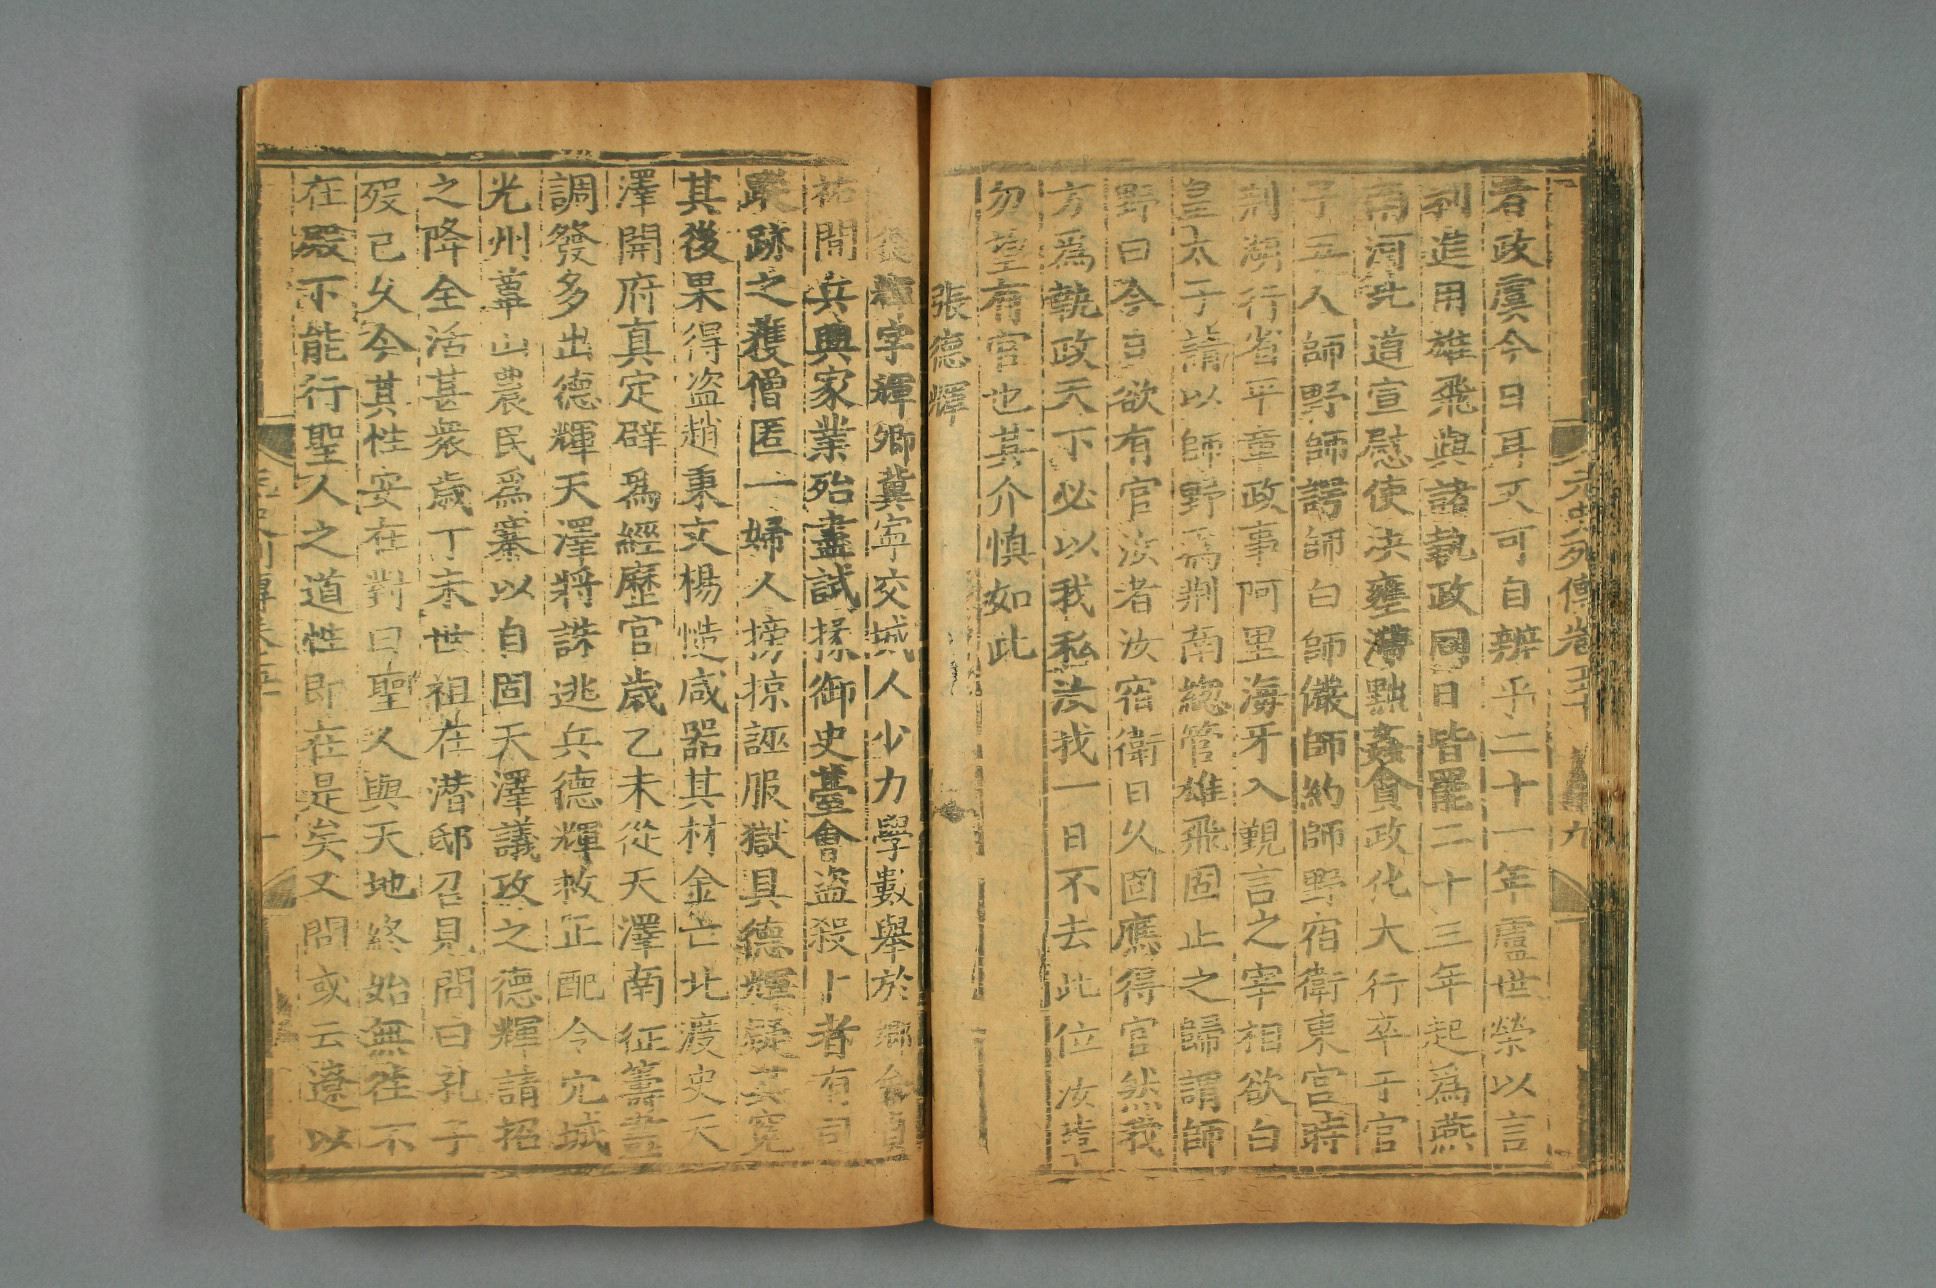 元史列傳卷五十 九
者政虞今日耳又可自辨乎二十一年盧世榮以言
利進用雄飛與諸執政同日皆罷二十三年起爲燕
南河北道宣慰使决壅滯黜姦貪政化大行卒于官
子五人師野師諤師白師儼師約師野宿衛東宮時
荆湖行省平章政事阿里海牙入覲言之宰相欲白
皇太子請以師野爲荆南總管雄飛固止之歸謂師
野曰今日欲有官汝者汝宿衛日久固應得官然我
方爲執政天下必以我私汝我一日不去此位汝輩
勿望有官也其介慎如此
張德輝
張德輝字輝卿冀寧交城人少力學數舉於鄉會貞
祐間兵興家業殆盡試掾御史臺會盜殺卜者有司
蹤跡之獲僧匿一婦人搒掠誣服獄具德輝疑其寃
其後果得盜趙秉文楊慥咸器其材金亡北渡史天
澤開府真定辟爲經歷官歲乙未從天澤南征籌畫
調發多出德輝天澤將誅逃兵德輝救止配令穴城
光州華山農民爲寨以自固天澤議攻之德輝請招
之降全活甚衆歲丁未世祖在潛邸召見問曰孔子
歿已久今其性安在對曰聖人與天地終始無往不
在殿下能行聖人之道性即在是矣又問或云遼以